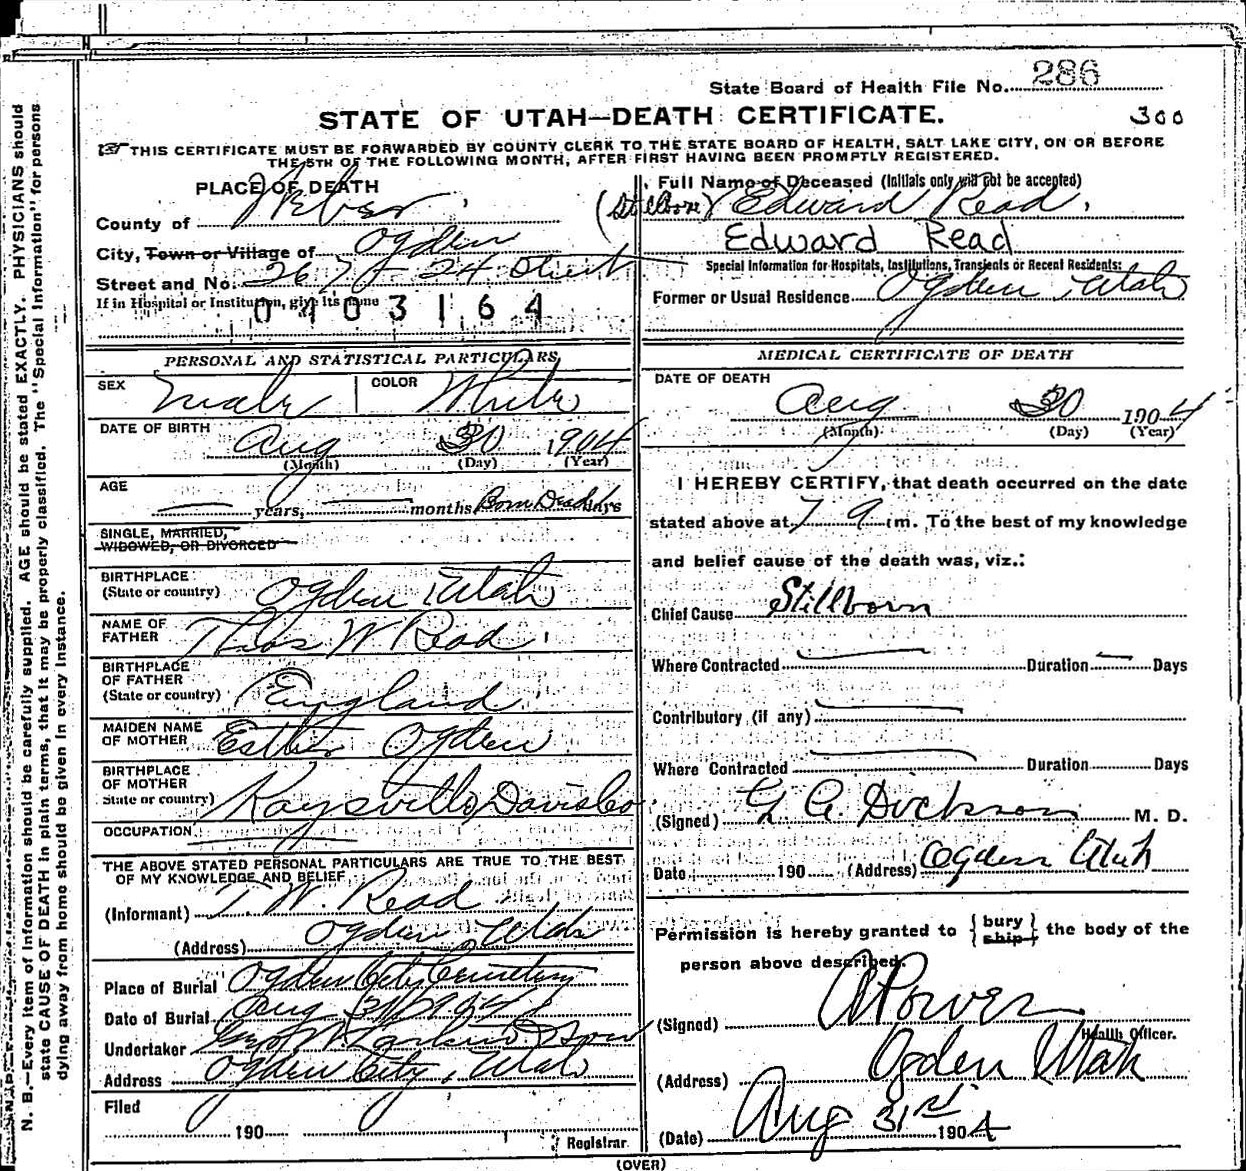 State Board of Health File No. 286
STATE OF UTAH—DEATH CERTIFICATE.
300
THIS CERTIFICATE MUST BE FORWARDED BY COUNTY CLERK TO THE STATE BOARD OF HEALTH, SALT LAKE CITY, ON OR BEFORE
THE 5TH OF THE FOLLOWING MONTH, AFTER FIRST HAVING BEEN PROMPTLY REGISTERED.
PLACE OF DEATH
County of Weber
City, Town or Village of Ogden
Street and No. 24 Street
If in Hospital or Institution, give its name
0403164
Full Name of Deceased (Initials only will not be accepted)
(Stillborn) Edward Read.
Edward Read
Special Information for Hospitals, Institutions, Transients or Recent Residents:
Former or Usual Residence Ogden, Utah
PERSONAL AND STATISTICAL PARTICULARS
SEX Male COLOR White
DATE OF BIRTH Aug 30 1904
(Month) (Day) (Year)
AGE
— years, — months Born Dead days
SINGLE, MARRIED,
WIDOWED, OR DIVORCED
BIRTHPLACE
(State or country) Ogden, Utah
NAME OF
FATHER Thos W Read.
BIRTHPLACE
OF FATHER
(State or country) England.
MAIDEN NAME
OF MOTHER Esther Ogden
BIRTHPLACE
OF MOTHER
State or country) Kaysville, Davis Co.
OCCUPATION
THE ABOVE STATED PERSONAL PARTICULARS ARE TRUE TO THE BEST
OF MY KNOWLEDGE AND BELIEF
(Informant) T. W. Read
(Address) Ogden, Utah
Place of Burial Ogden City Cemetery
Date of Burial Aug 31 1904
Undertaker Geo W. Larkin & Son
Address Ogden City, Utah
Filed
190
Registrar
MEDICAL CERTIFICATE OF DEATH
DATE OF DEATH
Aug 30 1904
(Month) (Day) (Year)
I HEREBY CERTIFY, that death occurred on the date
stated above at 7 a m. To the best of my knowledge
and belief cause of the death was, viz.:
Chief Cause Stillborn
Where Contracted — Duration — Days
Contributory (if any) —
Where Contracted — Duration Days
(Signed) Dickson M. D.
Date 190 (Address) Ogden Utah
Permission is hereby granted to { bury ship } the body of the
person above described.
(Signed) A Power
Health Officer.
(Address) Ogden Utah
(Date) Aug 31st 1904
(OVER)
N. B.—Every item of information should be carefully supplied. AGE should be stated EXACTLY. PHYSICIANS should
state CAUSE OF DEATH in plain terms, that it may be properly classified. The "Special Information" for persons
dying away from home should be given in every instance.